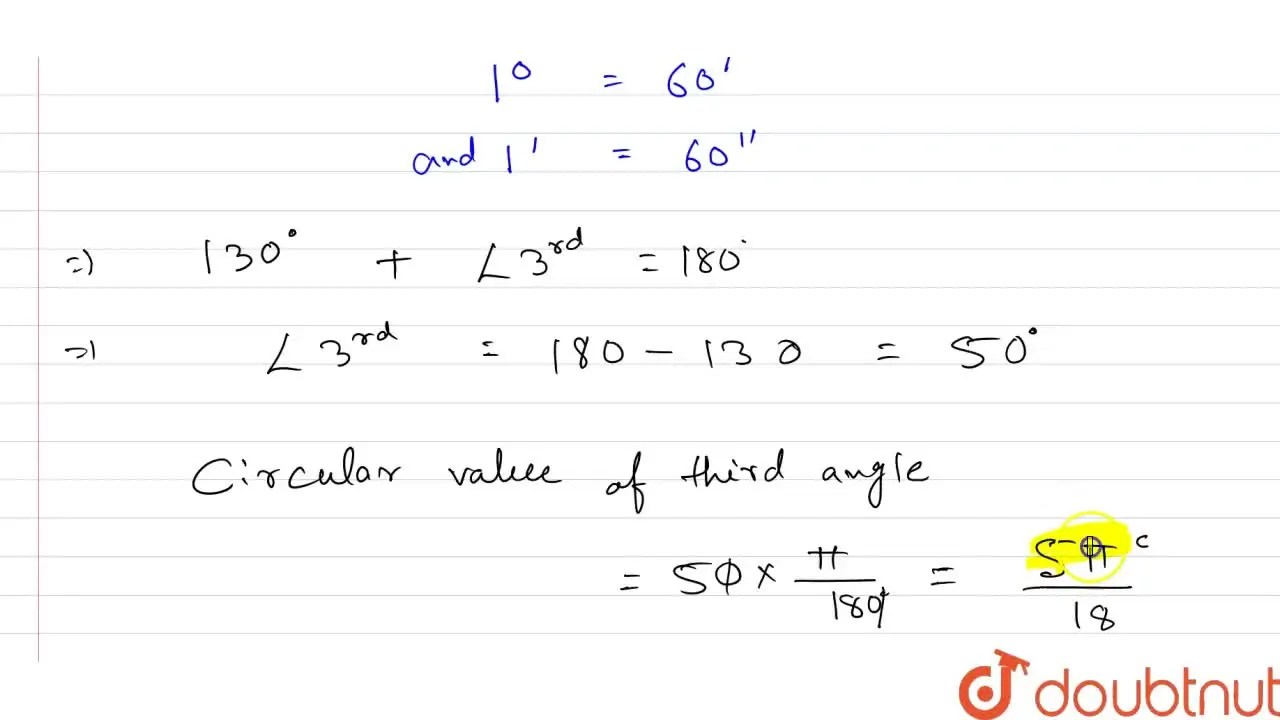 1° = 60'
and 1' = 60"
=) 130° + ∠3rd = 180°
=) ∠3rd = 180 - 130 = 50°
Circular value of third angle
= 50 × π/180 = 5π/18 c
doubtnut